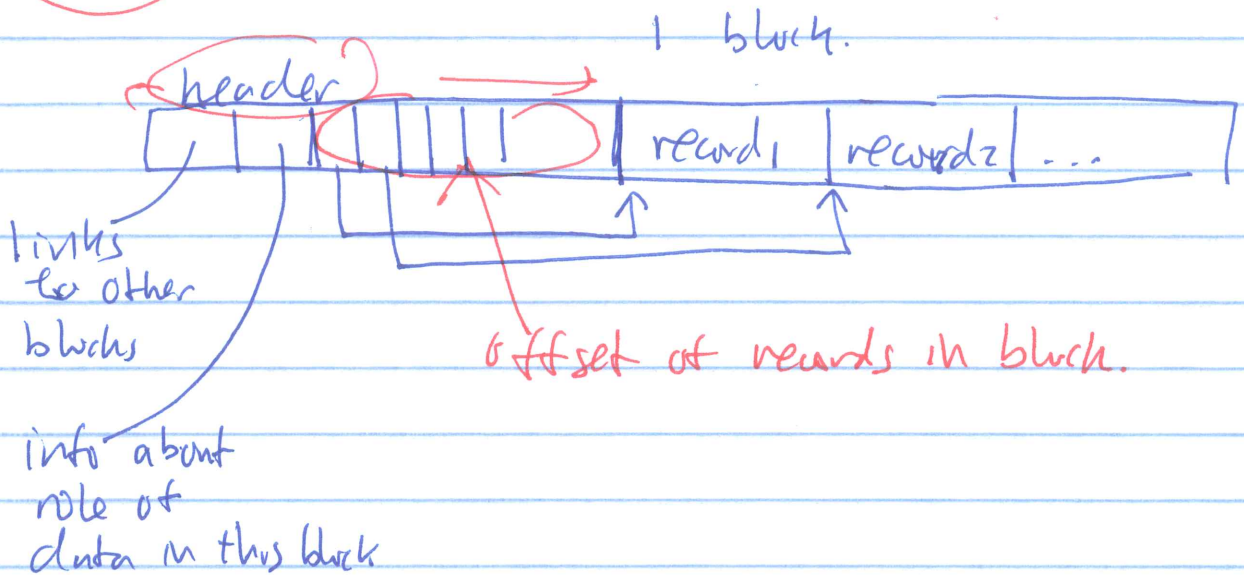 1 block.
header
record1 record2 ...
links
to other
blocks
offset of records in block.
info about
role of
data in this block